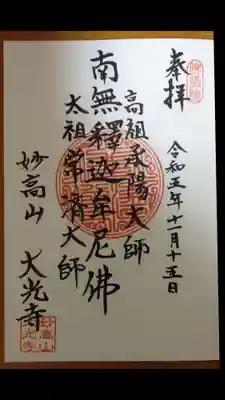 奉拝
令和五年十一月十五日
高祖承陽大師
南無釋迦牟尼佛
太祖常済大師
妙高山
大光寺